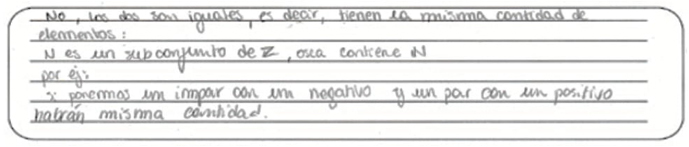 No, los dos son iguales, es decir, tienen la misma cantidad de
elementos:
N es un subconjunto de Z, osea contiene N
por ej:
si ponemos un impar con un negativo y un par con un positivo
habrán misma cantidad.